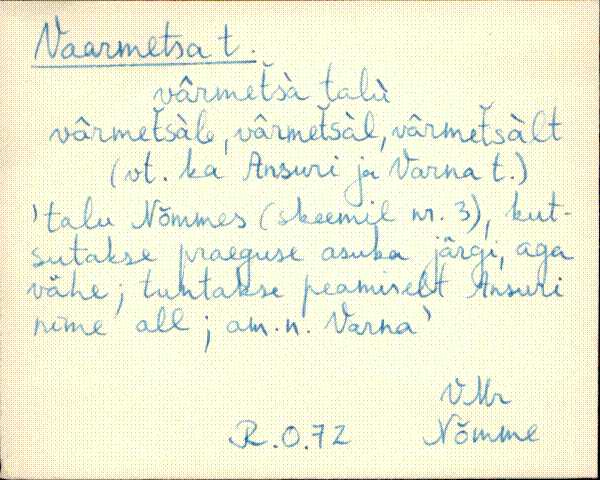 Vaarmetsa t.
vârmetsà talù
vârmetsàle, vârmetsàl, vârmetsàlt
(vt. ka Ansuri ja Varna t.)
'talu Nõmmes (skeemil nr. 3), kut-
sutakse praeguse asuka järgi, aga
vähe; tuntakse peamiselt Ansuri
nime all; am.n. Varna'
VMr
R.O.72 Nõmme